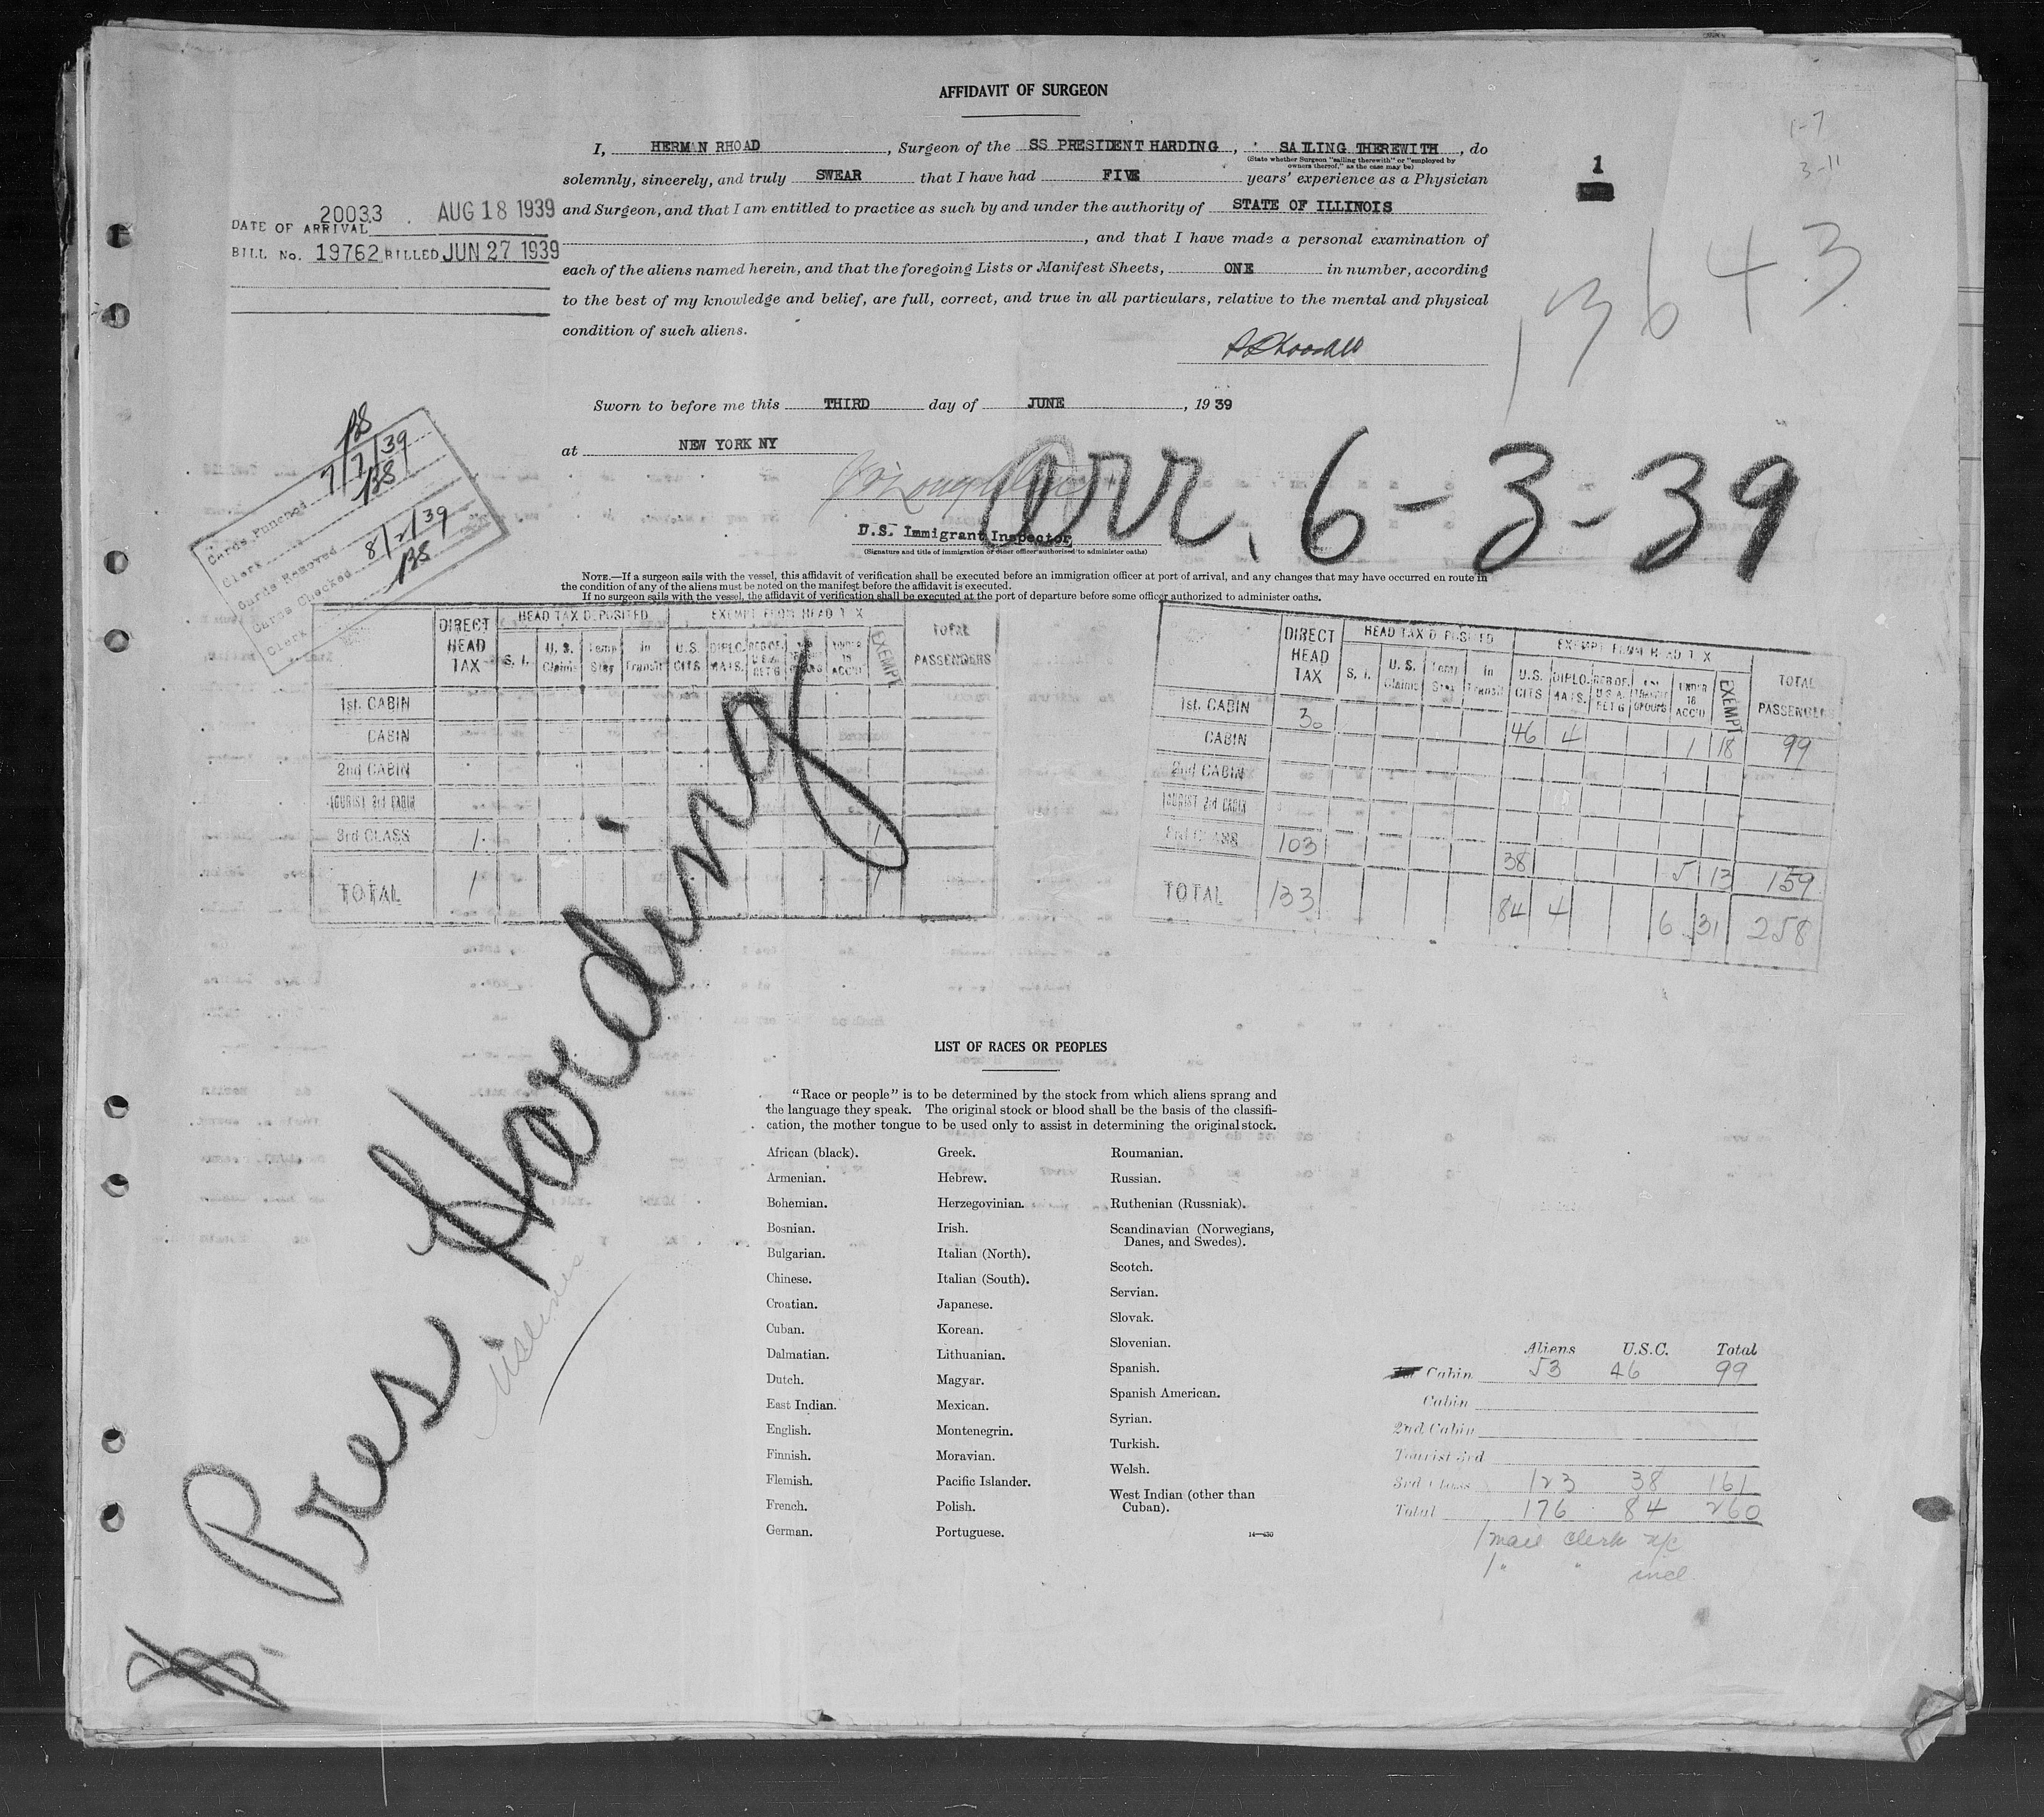 AFFIDAVIT OF SURGEON
1-7
3-11
1
13643
I, HERMAN RHOAD, Surgeon of the SS PRESIDENT HARDING, SAILING THEREWITH, do
(State whether Surgeon "sailing therewith" or "employed by owners thereof," as the case may be)
solemnly, sincerely, and truly SWEAR that I have had FIVE years' experience as a Physician
and Surgeon, and that I am entitled to practice as such by and under the authority of STATE OF ILLINOIS
, and that I have made a personal examination of
each of the aliens named herein, and that the foregoing Lists or Manifest Sheets, ONE in number, according
to the best of my knowledge and belief, are full, correct, and true in all particulars, relative to the mental and physical
condition of such aliens.
20033 AUG 18 1939
DATE OF ARRIVAL
BILL No. 19762 BILLED JUN 27 1939
Sworn to before me this THIRD day of JUNE, 1939
at NEW YORK NY
arr. 6-3-39
U.S. Immigrant Inspector
(Signature and title of immigration or other officer authorized to administer oaths)
BS
Cards Punched 7/7/39
Clerk BS
Cards Removed
Cards Checked 8/2/39
Clerk BS
NOTE.—If a surgeon sails with the vessel, this affidavit of verification shall be executed before an immigration officer at port of arrival, and any changes that may have occurred en route in
the condition of any of the aliens must be noted on the manifest before the affidavit is executed.
If no surgeon sails with the vessel, the affidavit of verification shall be executed at the port of departure before some officer authorized to administer oaths.
DIRECT HEAD TAX HEAD TAX DEPOSITED EXEMPT FROM HEAD TAX TOTAL PASSENGERS
S. I. U. S. Claims Temp Stay In Transit U.S. CITS DIPLOMATS. UNDER 16 ACC'D EXEMPT
1st. CABIN
CABIN
2nd CABIN
TOURIST 3rd CABIN
3rd CLASS 1 1
TOTAL 1 1
DIRECT HEAD TAX HEAD TAX DEPOSITED EXEMPT FROM HEAD TAX TOTAL PASSENGERS
S. I. U. S. Claims Temp Stay In Transit U.S. CITS. DIPLOMATS. RES OF. U.S.A. RET'G UNDER 16 ACC'D EXEMPT
1st. CABIN 30 46 4 1 18 99
CABIN
2nd CABIN
TOURIST 3rd CABIN
3rd CLASS 103 38 5 13 159
TOTAL 133 84 4 6 31 258
Pres Harding
LIST OF RACES OR PEOPLES
"Race or people" is to be determined by the stock from which aliens sprang and
the language they speak. The original stock or blood shall be the basis of the classifi-
cation, the mother tongue to be used only to assist in determining the original stock.
African (black).
Armenian.
Bohemian.
Bosnian.
Bulgarian.
Chinese.
Croatian.
Cuban.
Dalmatian.
Dutch.
East Indian.
English.
Finnish.
Flemish.
French.
German.
Greek.
Hebrew.
Herzegovinian.
Irish.
Italian (North).
Italian (South).
Japanese.
Korean.
Lithuanian.
Magyar.
Mexican.
Montenegrin.
Moravian.
Pacific Islander.
Polish.
Portuguese.
Roumanian.
Russian.
Ruthenian (Russniak).
Scandinavian (Norwegians,
Danes, and Swedes).
Scotch.
Servian.
Slovak.
Slovenian.
Spanish.
Spanish American.
Syrian.
Turkish.
Welsh.
West Indian (other than
Cuban).
14—430
Aliens U.S.C. Total
Cabin 53 46 99
Cabin
2nd Cabin
Tourist 3rd
3rd Class 123 38 161
Total 176 84 260
1 mail clerk n/c
1 " " incl.